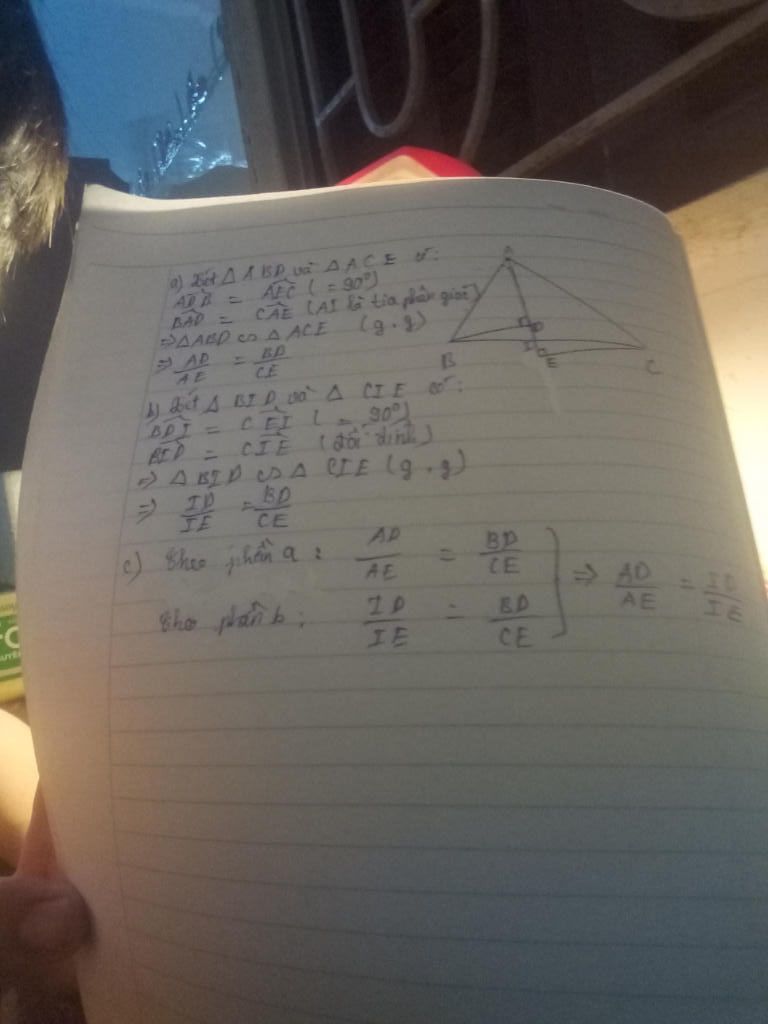 a) Xét △ ABD và △ ACE có:
ADB = AEC ( = 90°)
BAD = CAE (AI là tia phân giác)
⇒ △ABD ∽ △ACE (g.g)
⇒ AD/AE = BD/CE
b) Xét △ BID và △ CIE có:
BDI = CEI ( = 90°)
BID = CIE (đối đỉnh)
⇒ △ BID ∽ △ CIE (g.g)
⇒ ID/IE = BD/CE
c) Theo phần a : AD/AE = BD/CE
Theo phần b : ID/IE = BD/CE
⇒ AD/AE = ID/IE
A
D
B
I
E
C